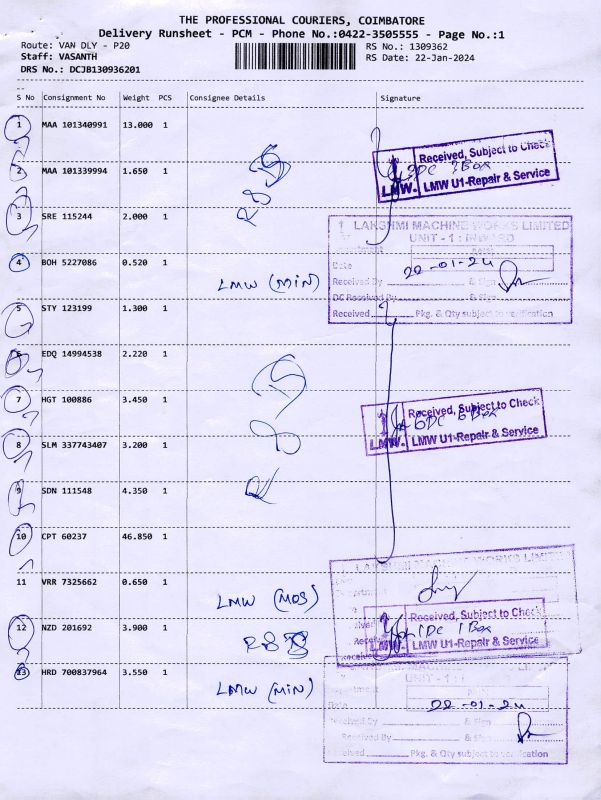 THE PROFESSIONAL COURIERS, COIMBATORE
Delivery Runsheet - PCM - Phone No.:0422-3505555 - Page No.:1
Route: VAN DLY - P20
RS No.: 1309362
Staff: VASANTH
RS Date: 22-Jan-2024
DRS No.: DCJB130936201
S No Consignment No Weight PCS Consignee Details Signature
1 MAA 101340991 13.000 1
Received, Subject to Check
3DC 3 Box
LMW. LMW U1-Repair & Service
2 MAA 101339994 1.650 1
R8S
3 SRE 115244 2.000 1
LAKSHMI MACHINE WORKS LIMITED
UNIT - 1 : INWARD
4 BOH 5227086 0.520 1 LMW (MIN)
Date 22-01-24
Received By & Sign
DC Received By & Sign
Received Pkg. & Qty subject to verification
5 STY 123199 1.300 1
6 EDQ 14994538 2.220 1
7 HGT 100886 3.450 1
Received, Subject to Check
6DC 6 Box
LMW. LMW U1-Repair & Service
8 SLM 337743407 3.200 1
9 SDN 111548 4.350 1
10 CPT 60237 46.850 1
11 VRR 7325662 0.650 1 LMW (MOS)
12 NZD 201692 3.900 1 R8S
Received, Subject to Check
1DC 1 Box
LMW. LMW U1-Repair & Service
13 HRD 700837964 3.550 1 LMW (MIN)
UNIT - 1 :
Date 22-01-24
Received By & Sign
Received By & Sign
Received Pkg. & Qty subject to verification